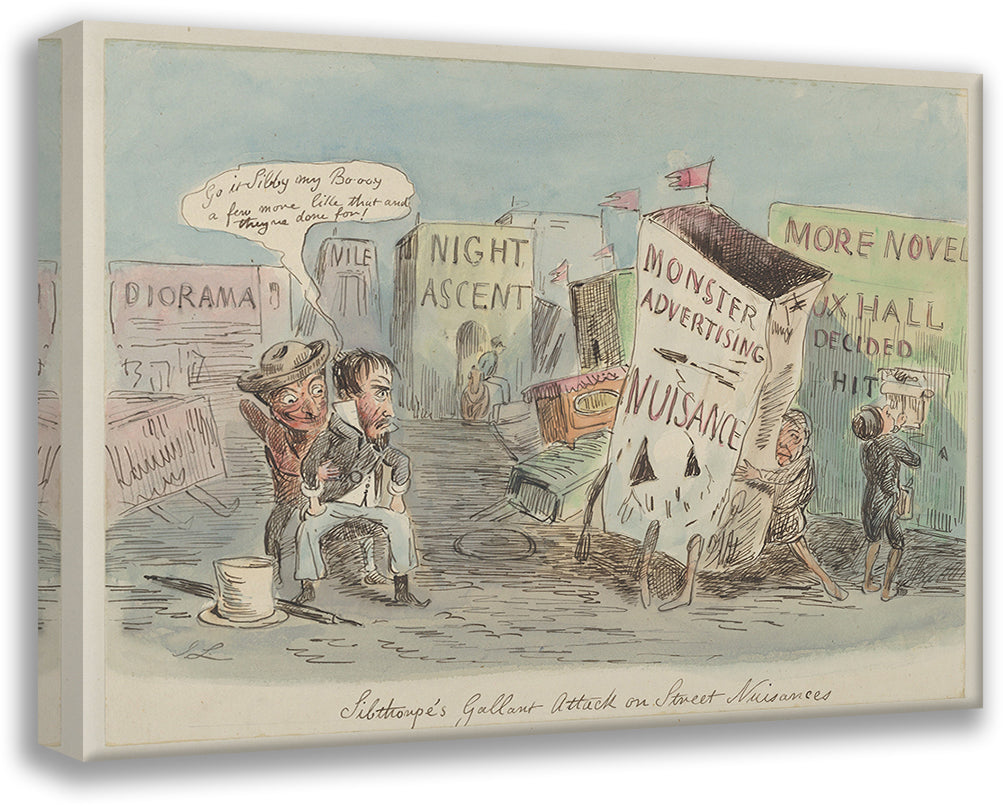 Go it Sibby my Bo-ooy
a few more like that and
they're done for!
DIORAMA
NILE
NIGHT
ASCENT
MONSTER
ADVERTISING
NUISANCE
MORE NOVEL
UX HALL
DECIDED
HIT
A
JL
Sibthorpe's Gallant Attack on Street Nuisances